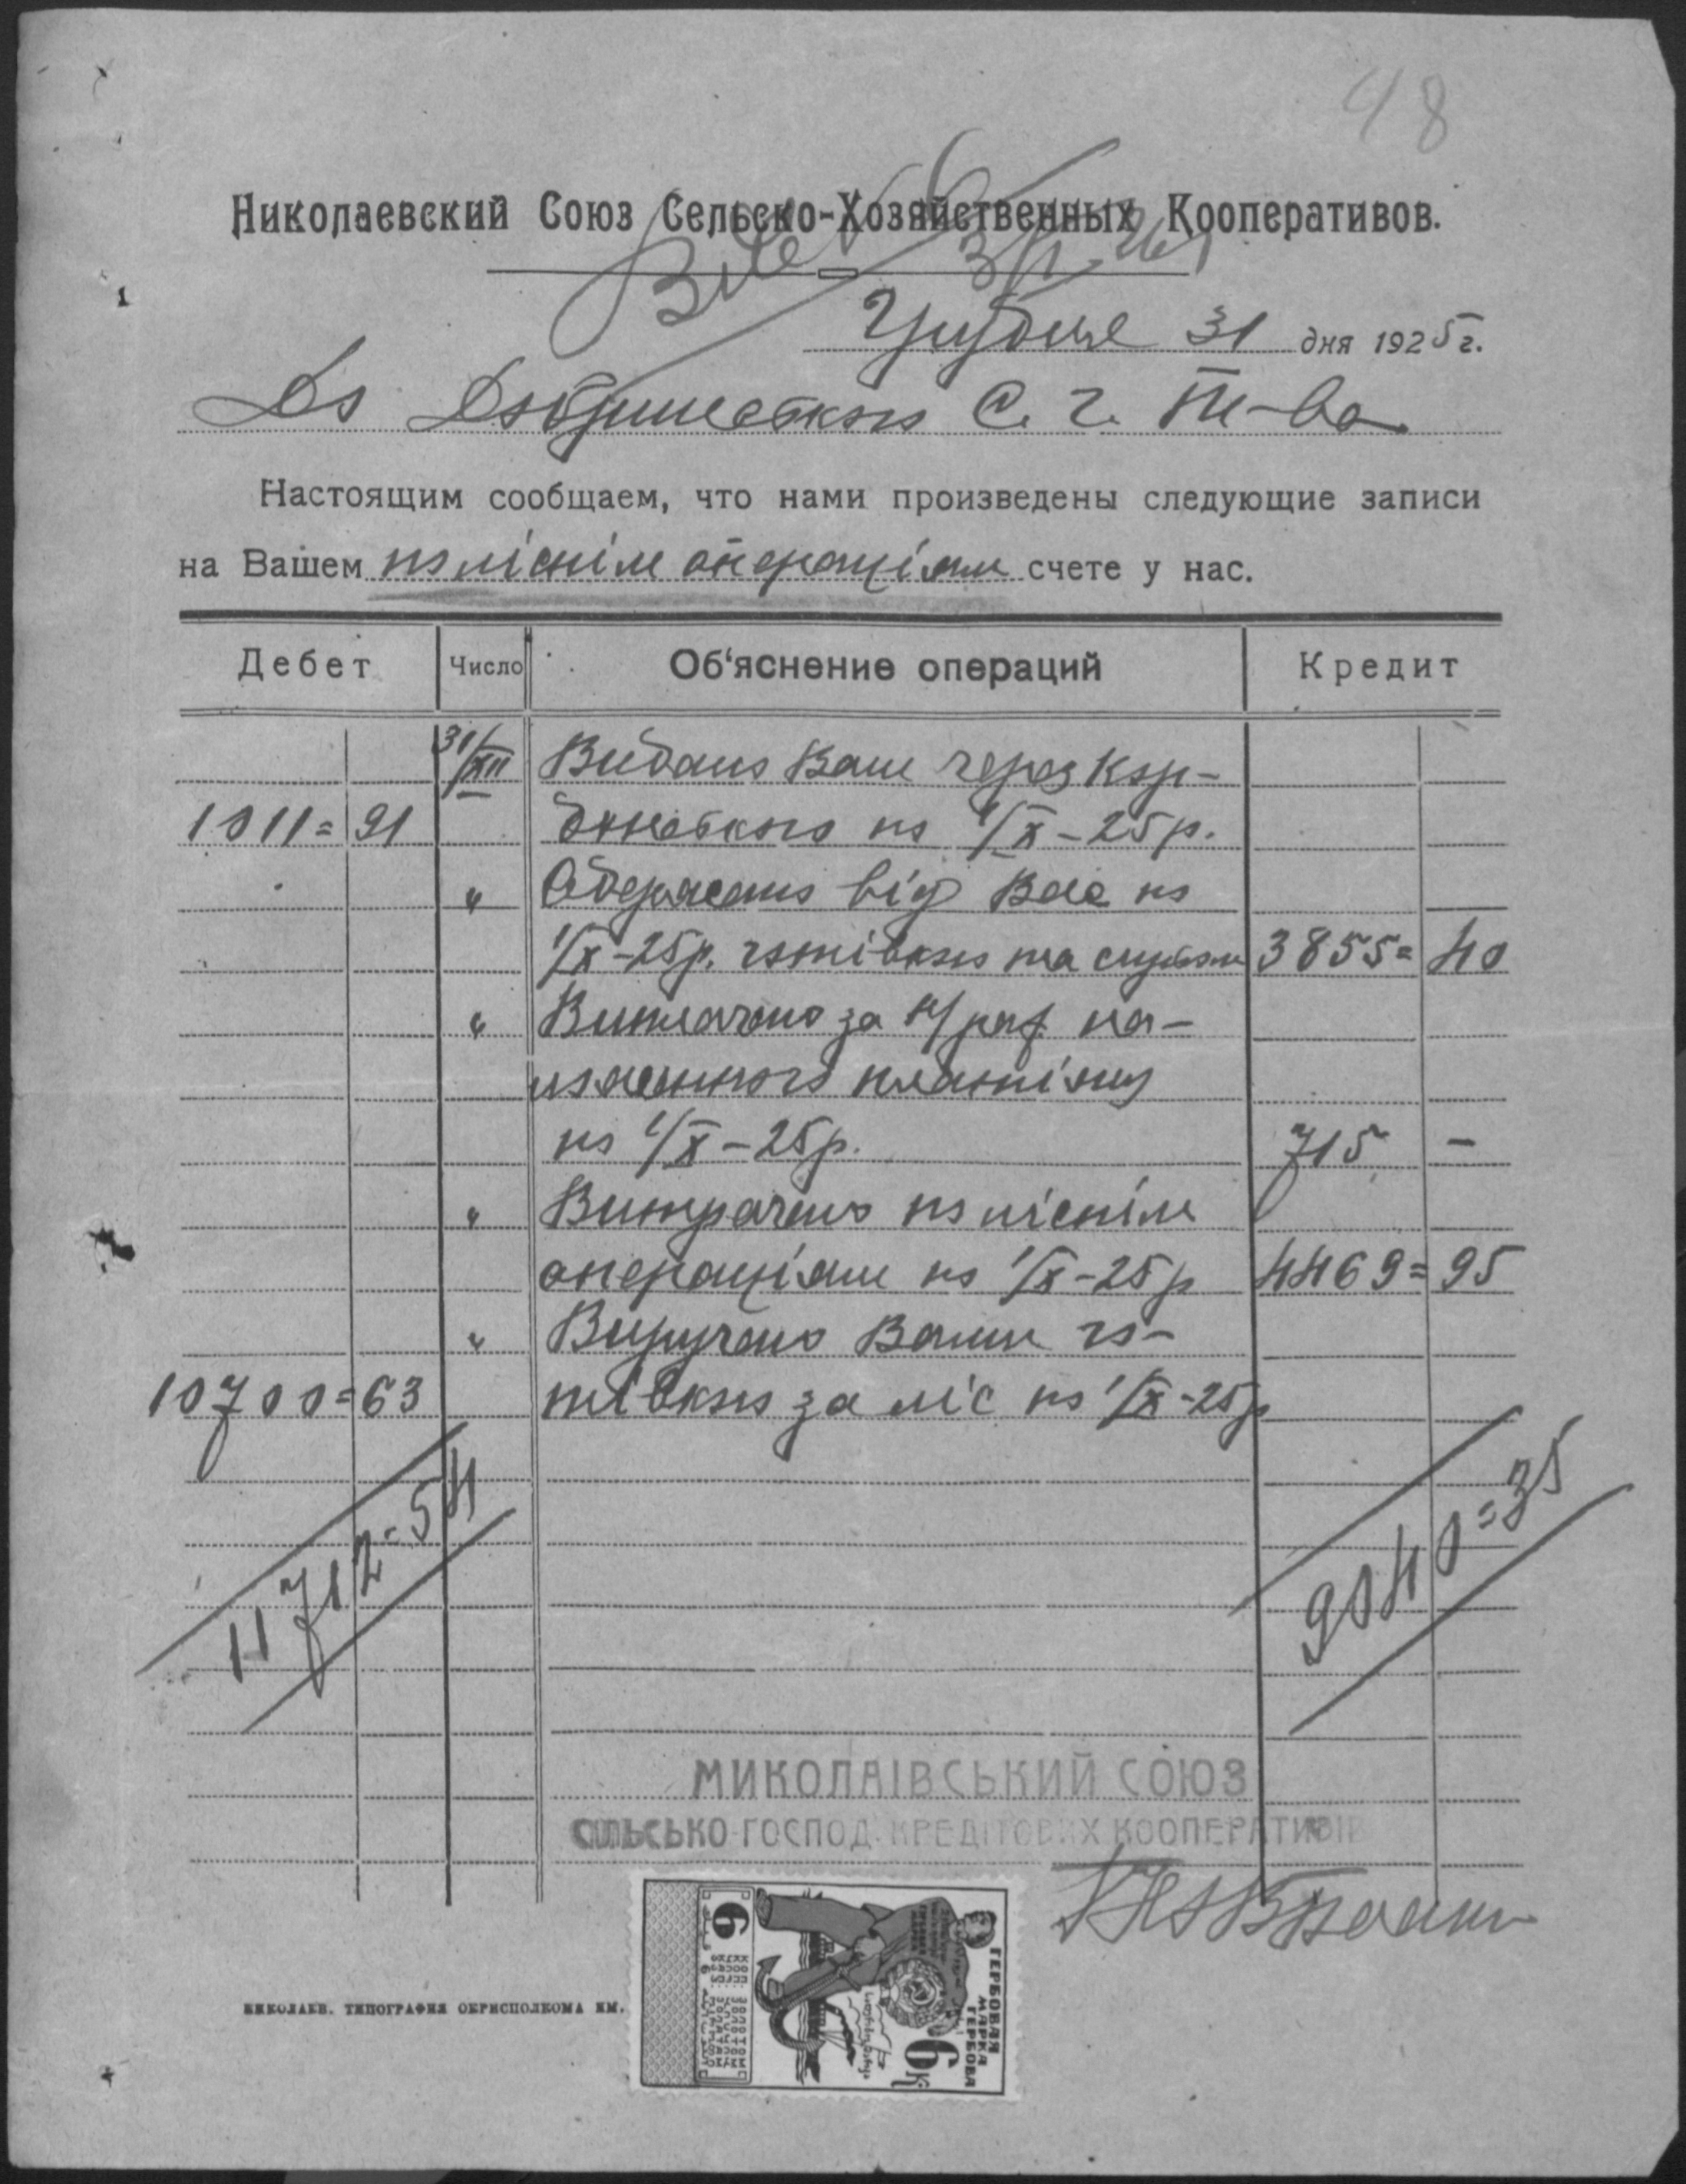 48
Николаевский Союз Сельско-Хозяйственных Кооперативов.
Грудня 31 дня 1925 г.
До Добринского С. Г. Т-ва
Настоящим сообщаем, что нами произведены следующие записи
на Вашем по ліснім операціям счете у нас.
Дебет Число Об‘яснение операций Кредит
31/XII Видано Вам через Кор-
1011=91 по 1/X-25 р.
" Одержано від Вас по
1/X-25 р. готівкою та 3855=40
" Виплачено за н/рах. по-
платіжу
по 1/X-25 р. 715 -
" Витрачено по ліснім
операціям по 1/X-25 р 4469=95
" Виручено Вами го-
10700=63 тівкою за ліс по 1/X-25 р
11712=54 9040=35
МИКОЛАІВСЬКИЙ СОЮЗ
СІЛЬСЬКО-ГОСПОД. КРЕДІТОВИХ КООПЕРАТИВІВ
ГЕРБОВАЯ
МАРКА
ГЕРБОВА
6
6к
НИКОЛАЕВ. ТИПОГРАФИЯ ОКРИСПОЛКОМА ИМ.